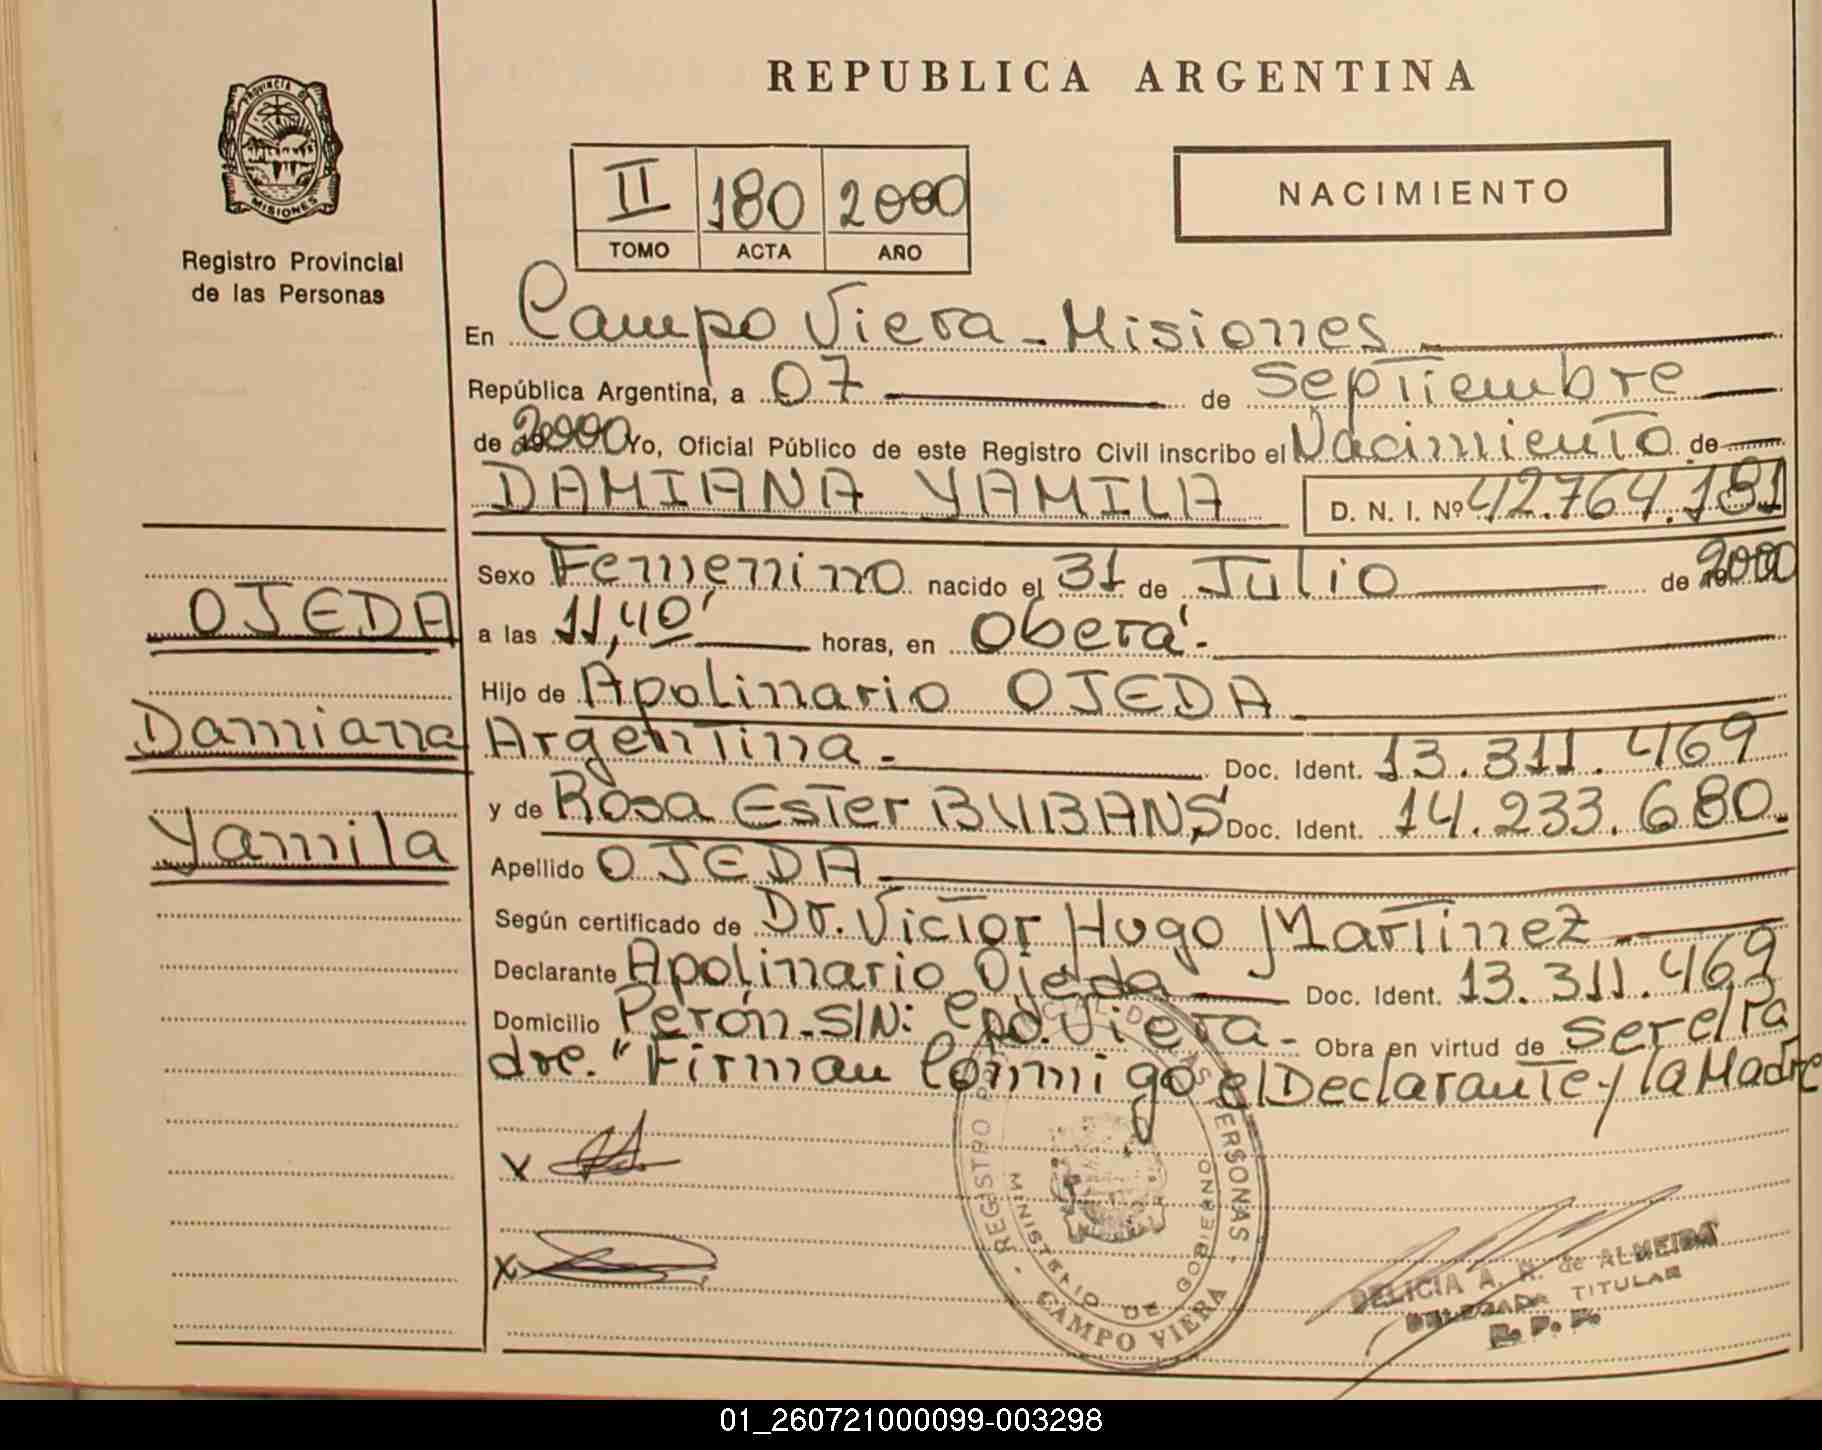 REPUBLICA ARGENTINA
PROVINCIA DE
MISIONES
Registro Provincial
de las Personas
II 180 2000
TOMO ACTA AÑO
NACIMIENTO
En Campo Viera - Misiones
República Argentina, a 07 de Septiembre
de 2000 Yo, Oficial Público de este Registro Civil inscribo el Nacimiento de
DAMIANA YAMILA D. N. I. Nº 42.764.181
Sexo Femenino nacido el 31 de Julio de 2000
a las 11,40' horas, en Oberá.-
Hijo de Apolinario OJEDA
Argentina.- Doc. Ident. 13.311.469
y de Rosa Ester BUBANS, Doc. Ident. 14.233.680.
Apellido OJEDA
Según certificado de Dr. Victor Hugo Martinez
Declarante Apolinario Ojeda Doc. Ident. 13.311.469
Domicilio Perón - S/N: Cpo. Viera - Obra en virtud de ser el Pa
dre. " Firman Conmigo el Declarante y la Madre
OJEDA
Damiana
Yamila
X
X
REGISTRO PROVINCIAL DE LAS PERSONAS
MINISTERIO DE GOBIERNO
CAMPO VIERA
DELICIA A. R. de ALMEIDA
DELEGADA TITULAR
R. P. P.
01_260721000099-003298